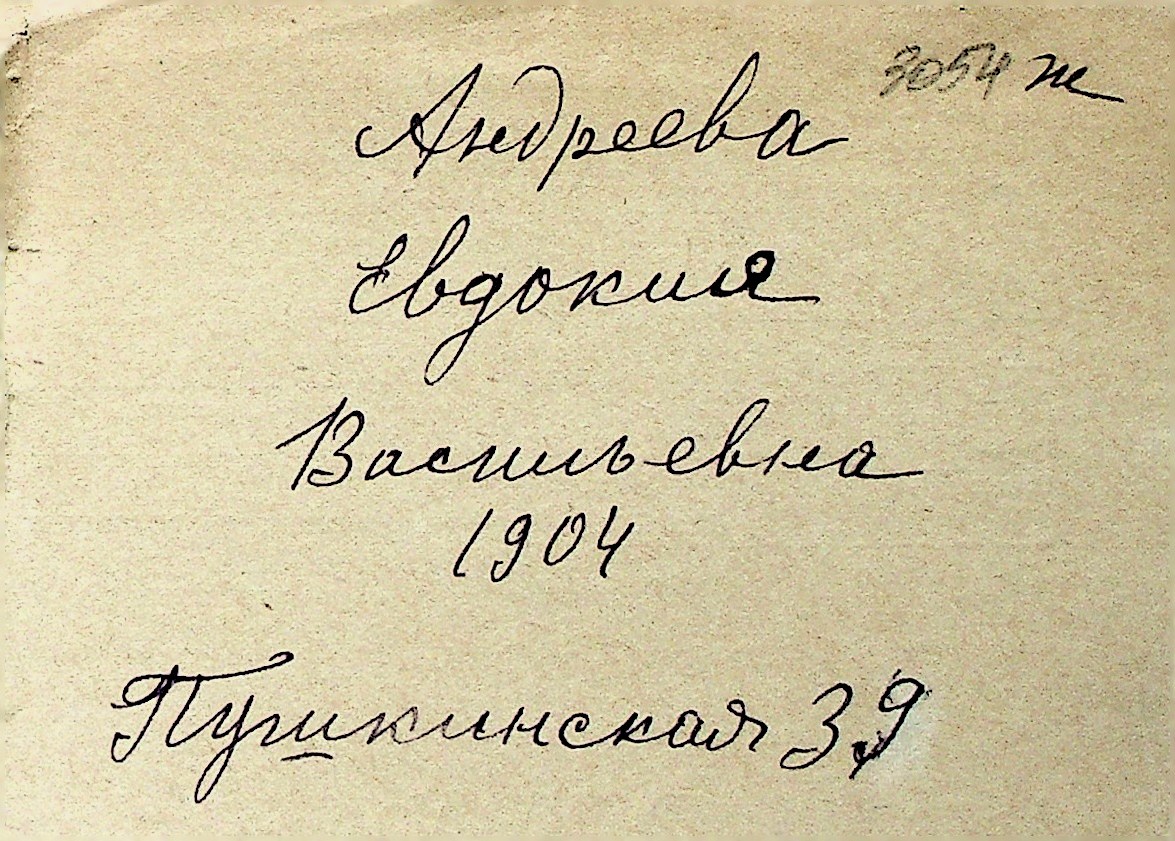 3054 ж
Андреева
Евдокия
Васильевна
1904
Пушкинская 39